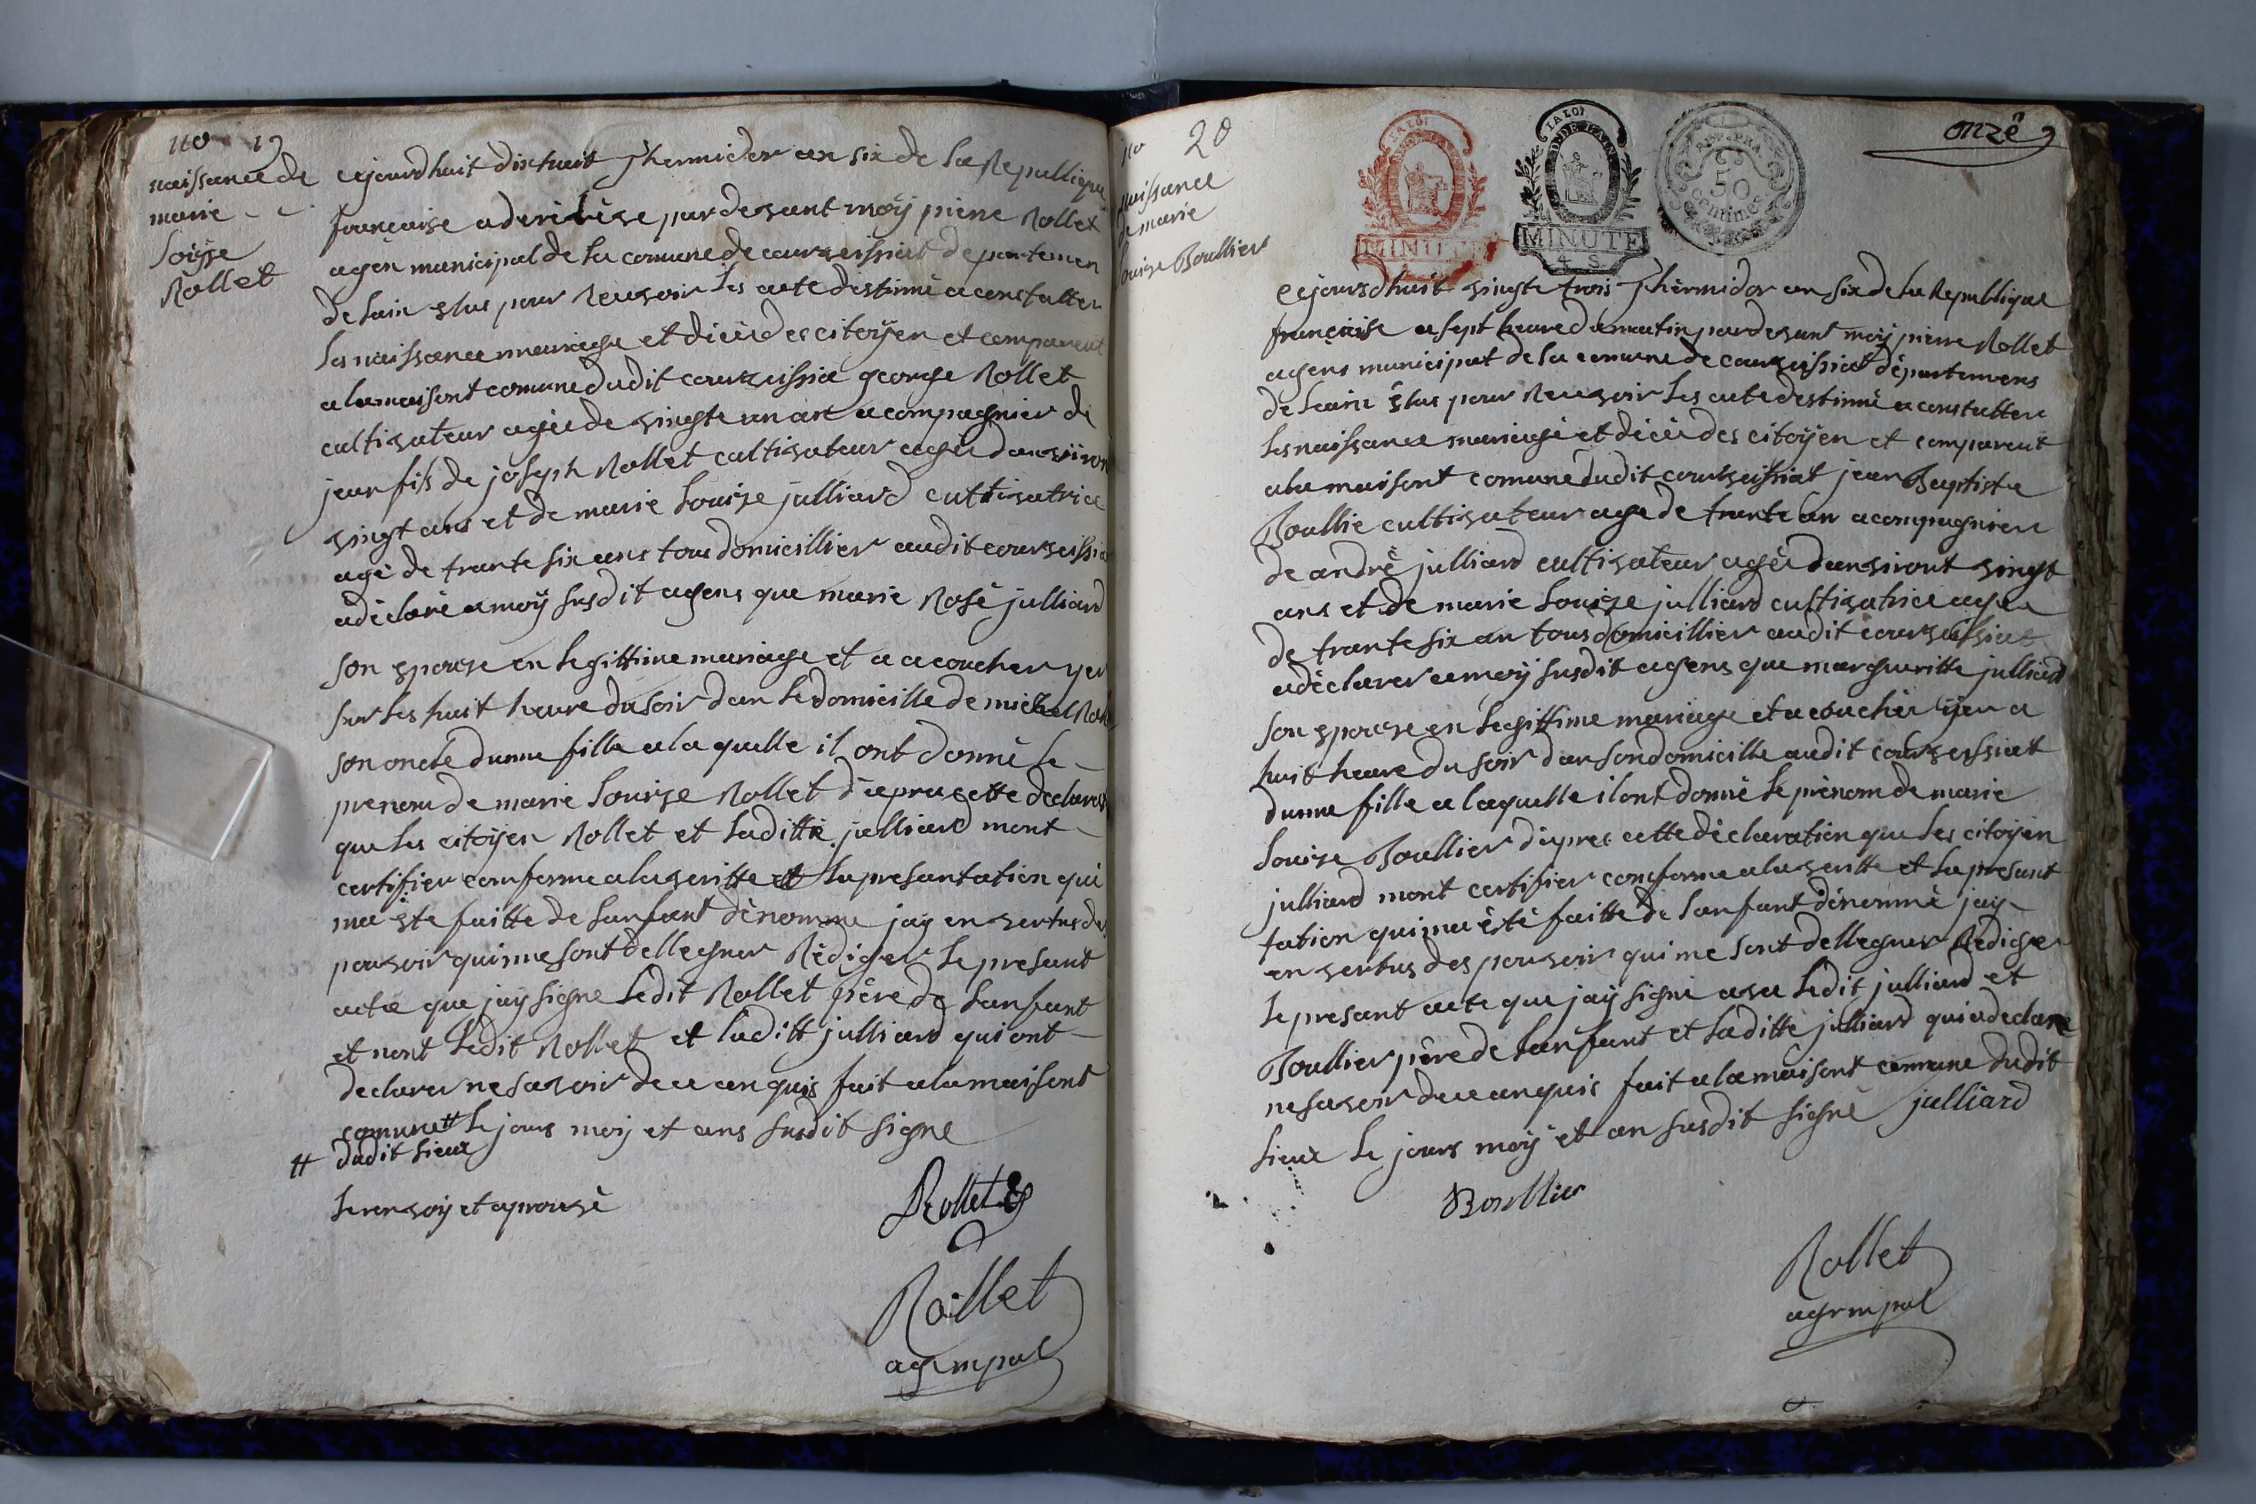 no 19
naissance de
marie
Loiyse
Rollet
cejourdhuit dixhuit Thermidor an six de la Republique
francaise a dix heure par devant moÿ pierre Rollet
agen municipal de la comune de courzeissiat departemen
de lain élus pour Recevoir les acte destinné a constatter
les naissance mauriage et décè des citoÿen et comparent
a la maisont comune dudit courzeissia george Rollet
cultivateur agée de vingte un an acompagnier de
jean fils de joseph Rollet cultivateur agée danviron
vingt ans et de marie Louize julliard cultivatrice
agé de trante six ans tous domicillier audit courzeissia
a déclaré a moÿ susdit agens que marie Rose julliard
son epouze en legittime mariage et a acoucher yer
sur les huit heure du soir dan le domicille de michel Rollet
son oncle dunne fille a la quelle il ont donné le
prenom de marie Louize Rollet daprés cette declaration
que les citoÿen Rollet et laditte julliard mont
certifier conforme a la veritte et la presantation qui
ma éte faitte de lanfant dénomme jay en vertus des
pouvoir qui me sont dellegner Rédiger le presant
acte que jaÿ signe ledit Rollet pére de lanfant
et nont ledit Rollet et laditt julliard qui ont
declarer ne savoir de ce anquis fait a la maisont
comune # le jours moy et ans susdit signe
# dudit lieux
le renvoÿ et aprouvé
Rollet
Rollet
ag mpal
no 20
naissance
de marie
Louize Boullier
LA LOI
MINUTE
LA LOI
MINUTE
4. S.
REP. FRA.
50
centimes
onze
cejoursdhuit vingte trois Thermidor an six de la Republique
française a sept heure du matin par devant moÿ pierre Rollet
agens municipal de la comune de courzeissiat départemens
de lain élus pour Recevoir les acte destinné a constatter
les naissance mariage et décè des citoÿen et comparent
a la maisont comune dudit courzeissiat jean Baptiste
Boullie cultivateur age de trante an acompagnier
de andré julliard cultivateur agée danviront vingt
ans et de marie Louize julliard cultivatrice agée
de trante six an tous domicillier audit courzeissiat
a déclarer a moÿ susdit agens que margueritte julliard
son epouze en legittime mariage et acouchér yer a
huit heure du soir dan son domicille audit courzeissiat
dunne fille a laquelle il ont donné le prénom de marie
Louize Boullier dapres cette déclaration que les citoÿen
julliard mont certifier conforme a la veritte et la presant
tation qui ma été faitte de lanfant dénommé jay
en vertus des pouvoir qui me sont dellegner Rédiger
le presant acte que jaÿ signé avec ledit julliard et
Boullier pére de lanfant et laditte julliard qui a declaré
ne savoir de ce anquis fait a la maisont comune dudit
lieux le jours moÿ et an susdit signé julliard
Boullier
Rollet
agr mpal